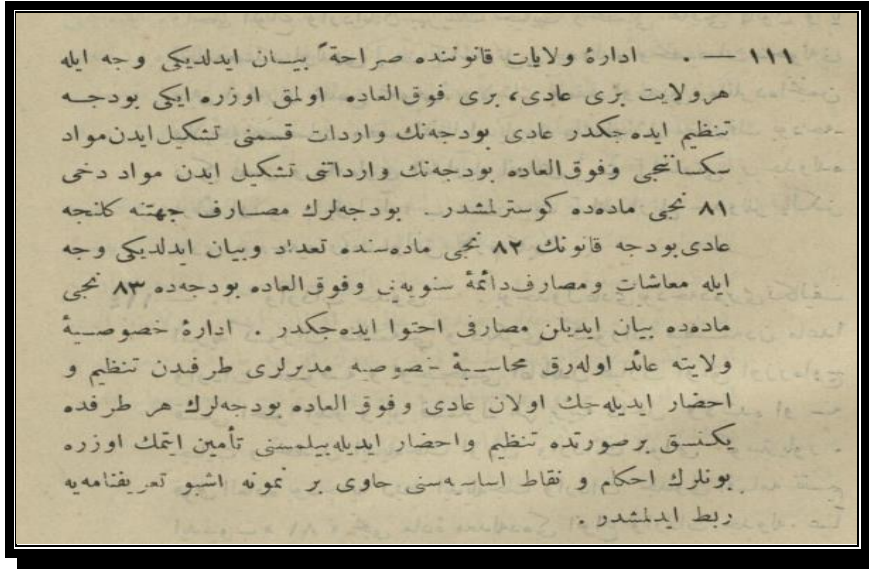 ١١١ — . ادارۀ ولايات قانوننده صراحةً بيــان ايدلديكى وجه ايله
هر ولايت برى عادى، برى فوق العاده اولمق اوزره ايكى بودجــه
تنظيم ايده جكدر عادى بودجه نك واردات قسمنى تشكيل ايدن مواد
سكساننجى وفوق العاده بودجه نك وارداتنى تشكيل ايدن مواد دخى
٨١ نجى ماده ده كوسترلمشدر . بودجه لرك مصــارف جهتنه كلنجه
عادى بودجه قانونك ٨٢ نجى ماده سنده تعداد وبيان ايدلديكى وجه
ايله معاشات ومصارف دائمۀ سنويه نى وفوق العاده بودجه ده ٨٣ نجى
ماده ده بيان ايديلن مصارفى احتوا ايده جكدر . ادارۀ خصوصــيۀ
ولايته عائد اوله رق محاســبۀ خصوصيه مديرلرى طرفندن تنظيم و
احضار ايديله جك اولان عادى وفوق العاده بودجه لرك هر طرفده
يكنسق بر صورتده تنظيم واحضار ايديله بيلمسنى تأمين ايتمك اوزره
بونلرك احكام و نقاط اساسيه سنى حاوى بر نمونه اشبو تعريفنامه يه
ربط ايدلمشدر .